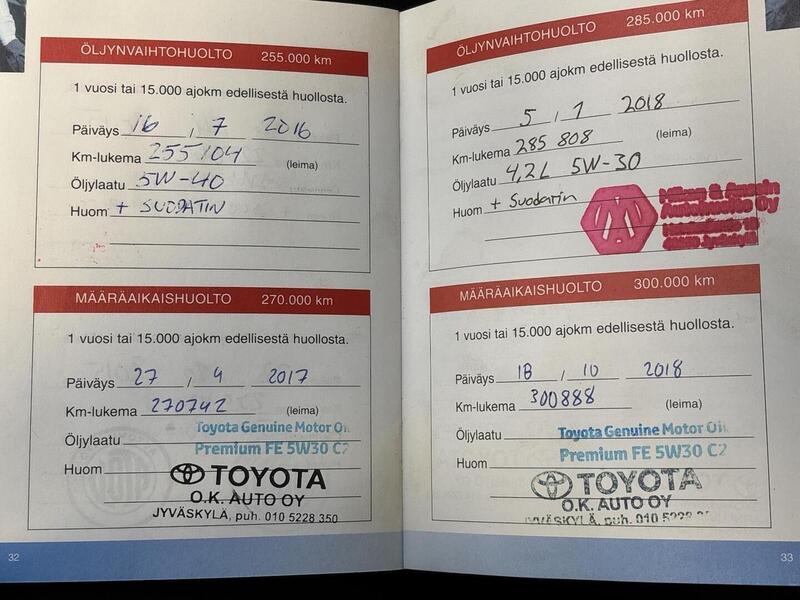 ÖLJYNVAIHTOHUOLTO 255.000 km
1 vuosi tai 15.000 ajokm edellisestä huollosta.
Päiväys 16 / 7 2016
Km-lukema 255104 (leima)
Öljylaatu 5W-40
Huom + SUODATIN
MÄÄRÄAIKAISHUOLTO 270.000 km
1 vuosi tai 15.000 ajokm edellisestä huollosta.
Päiväys 27 / 4 2017
Km-lukema 270742 (leima)
Toyota Genuine Motor Oil
Öljylaatu
Premium FE 5W30 C2
Huom
TOYOTA
O.K. AUTO OY
JYVÄSKYLÄ, puh. 010 5228 350
32
ÖLJYNVAIHTOHUOLTO 285.000 km
1 vuosi tai 15.000 ajokm edellisestä huollosta.
Päiväys 5 / 1 2018
Km-lukema 285 808 (leima)
Öljylaatu 4,2L 5W-30
Huom + Suodatin
Autohuolto Oy
MÄÄRÄAIKAISHUOLTO 300.000 km
1 vuosi tai 15.000 ajokm edellisestä huollosta.
Päiväys 18 / 10 2018
Km-lukema 300888 (leima)
Öljylaatu Toyota Genuine Motor Oil
Premium FE 5W30 C2
Huom
TOYOTA
O.K. AUTO OY
JYVÄSKYLÄ, puh. 010 5228
33